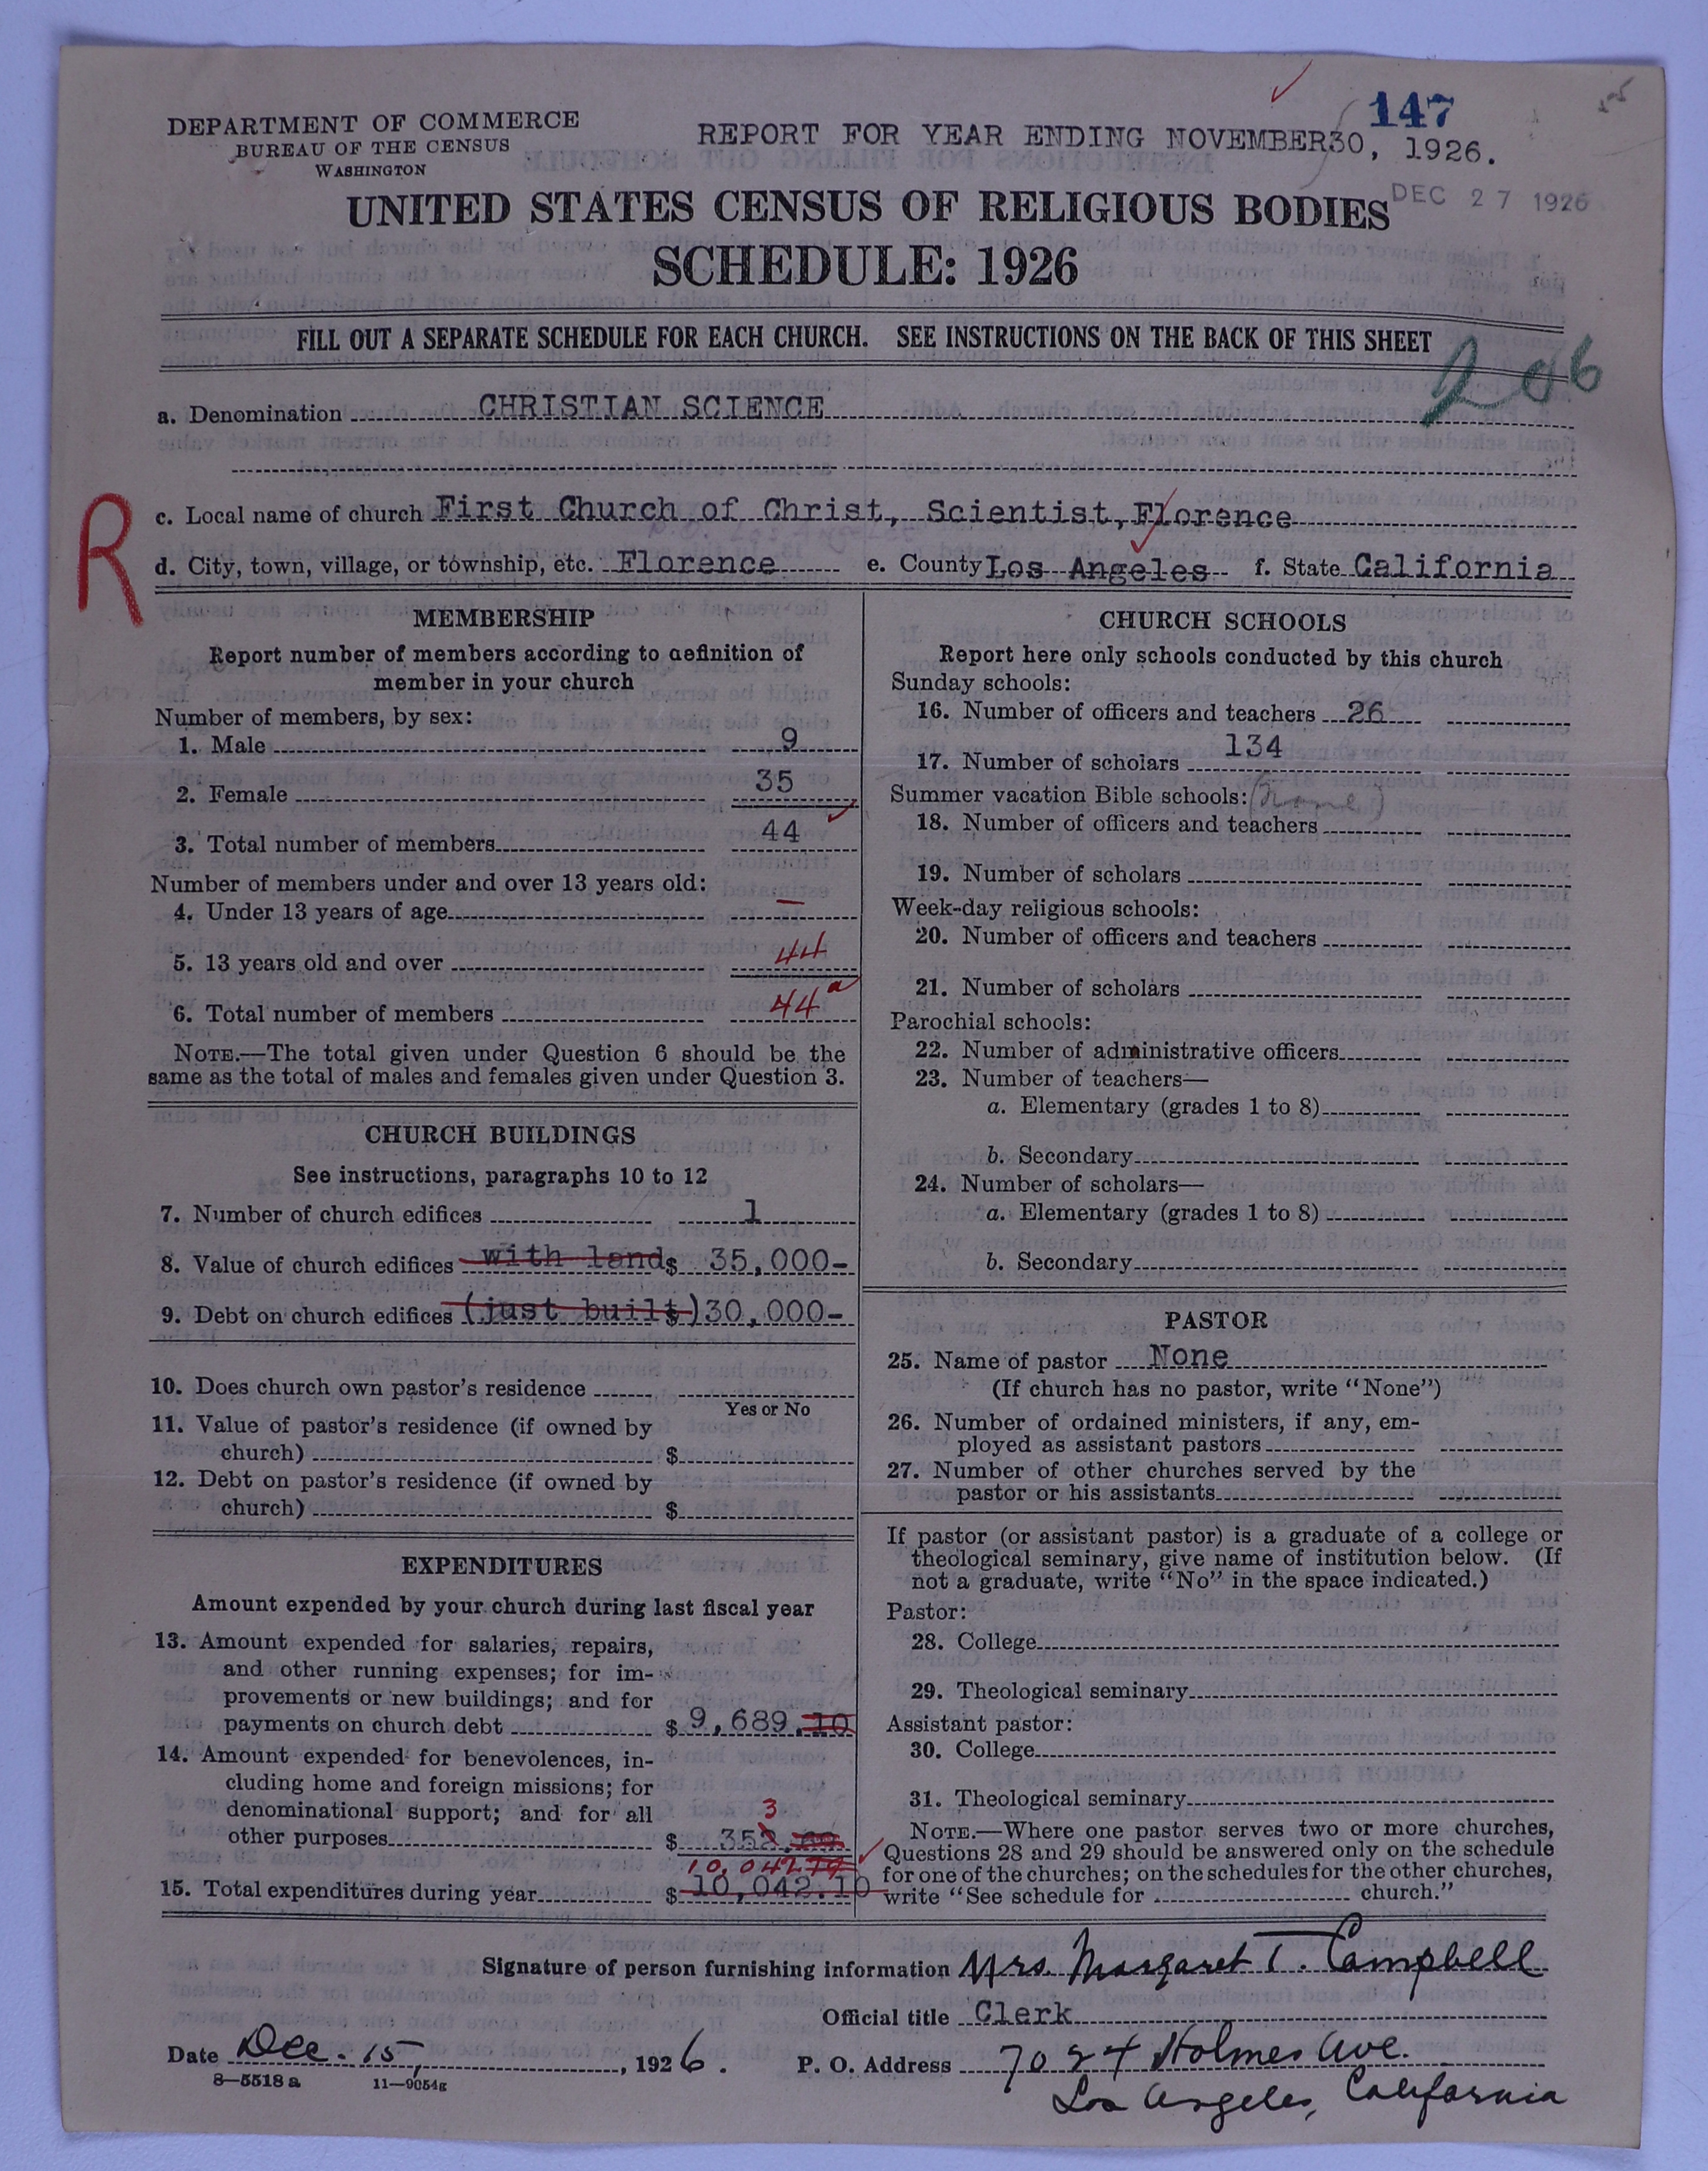 147
DEPARTMENT OF COMMERCE
BUREAU OF THE CENSUS
WASHINGTON
REPORT FOR YEAR ENDING NOVEMBER30, 1926.
DEC 27 1926
UNITED STATES CENSUS OF RELIGIOUS BODIES
SCHEDULE: 1926
FILL OUT A SEPARATE SCHEDULE FOR EACH CHURCH. SEE INSTRUCTIONS ON THE BACK OF THIS SHEET
206
a. Denomination CHRISTIAN SCIENCE
R
c. Local name of church First Church of Christ, Scientist, Florence
d. City, town, village, or township, etc. Florence e. County Los Angeles f. State California
MEMBERSHIP
Report number of members according to definition of
member in your church
Number of members, by sex:
1. Male 9
2. Female 35
3. Total number of members 44
Number of members under and over 13 years old:
4. Under 13 years of age –
5. 13 years old and over 44
6. Total number of members 44 a
NOTE.—The total given under Question 6 should be the
same as the total of males and females given under Question 3.
CHURCH BUILDINGS
See instructions, paragraphs 10 to 12
7. Number of church edifices 1
8. Value of church edifices with land $ 35,000-
9. Debt on church edifices (just built) $ 30,000-
10. Does church own pastor's residence
Yes or No
11. Value of pastor's residence (if owned by
church) $
12. Debt on pastor's residence (if owned by
church) $
EXPENDITURES
Amount expended by your church during last fiscal year
13. Amount expended for salaries, repairs,
and other running expenses; for im-
provements or new buildings; and for
payments on church debt $ 9,689.10
14. Amount expended for benevolences, in-
cluding home and foreign missions; for
denominational support; and for all
3
other purposes $ 352
10,042
15. Total expenditures during year $ 10,042.10
CHURCH SCHOOLS
Report here only schools conducted by this church
Sunday schools:
16. Number of officers and teachers 26
17. Number of scholars 134
Summer vacation Bible schools: (None)
18. Number of officers and teachers
19. Number of scholars
Week-day religious schools:
20. Number of officers and teachers
21. Number of scholars
Parochial schools:
22. Number of administrative officers
23. Number of teachers—
a. Elementary (grades 1 to 8)
b. Secondary
24. Number of scholars—
a. Elementary (grades 1 to 8)
b. Secondary
PASTOR
25. Name of pastor None
(If church has no pastor, write "None")
26. Number of ordained ministers, if any, em-
ployed as assistant pastors
27. Number of other churches served by the
pastor or his assistants
If pastor (or assistant pastor) is a graduate of a college or
theological seminary, give name of institution below. (If
not a graduate, write "No" in the space indicated.)
Pastor:
28. College
29. Theological seminary
Assistant pastor:
30. College
31. Theological seminary
NOTE.—Where one pastor serves two or more churches,
Questions 28 and 29 should be answered only on the schedule
for one of the churches; on the schedules for the other churches,
write "See schedule for church."
Signature of person furnishing information Mrs. Margaret T. Campbell
Official title Clerk
Date Dec. 15, 1926. P. O. Address 7024 Holmes Ave.
8—5518 a 11—9054g
Los Angeles, California